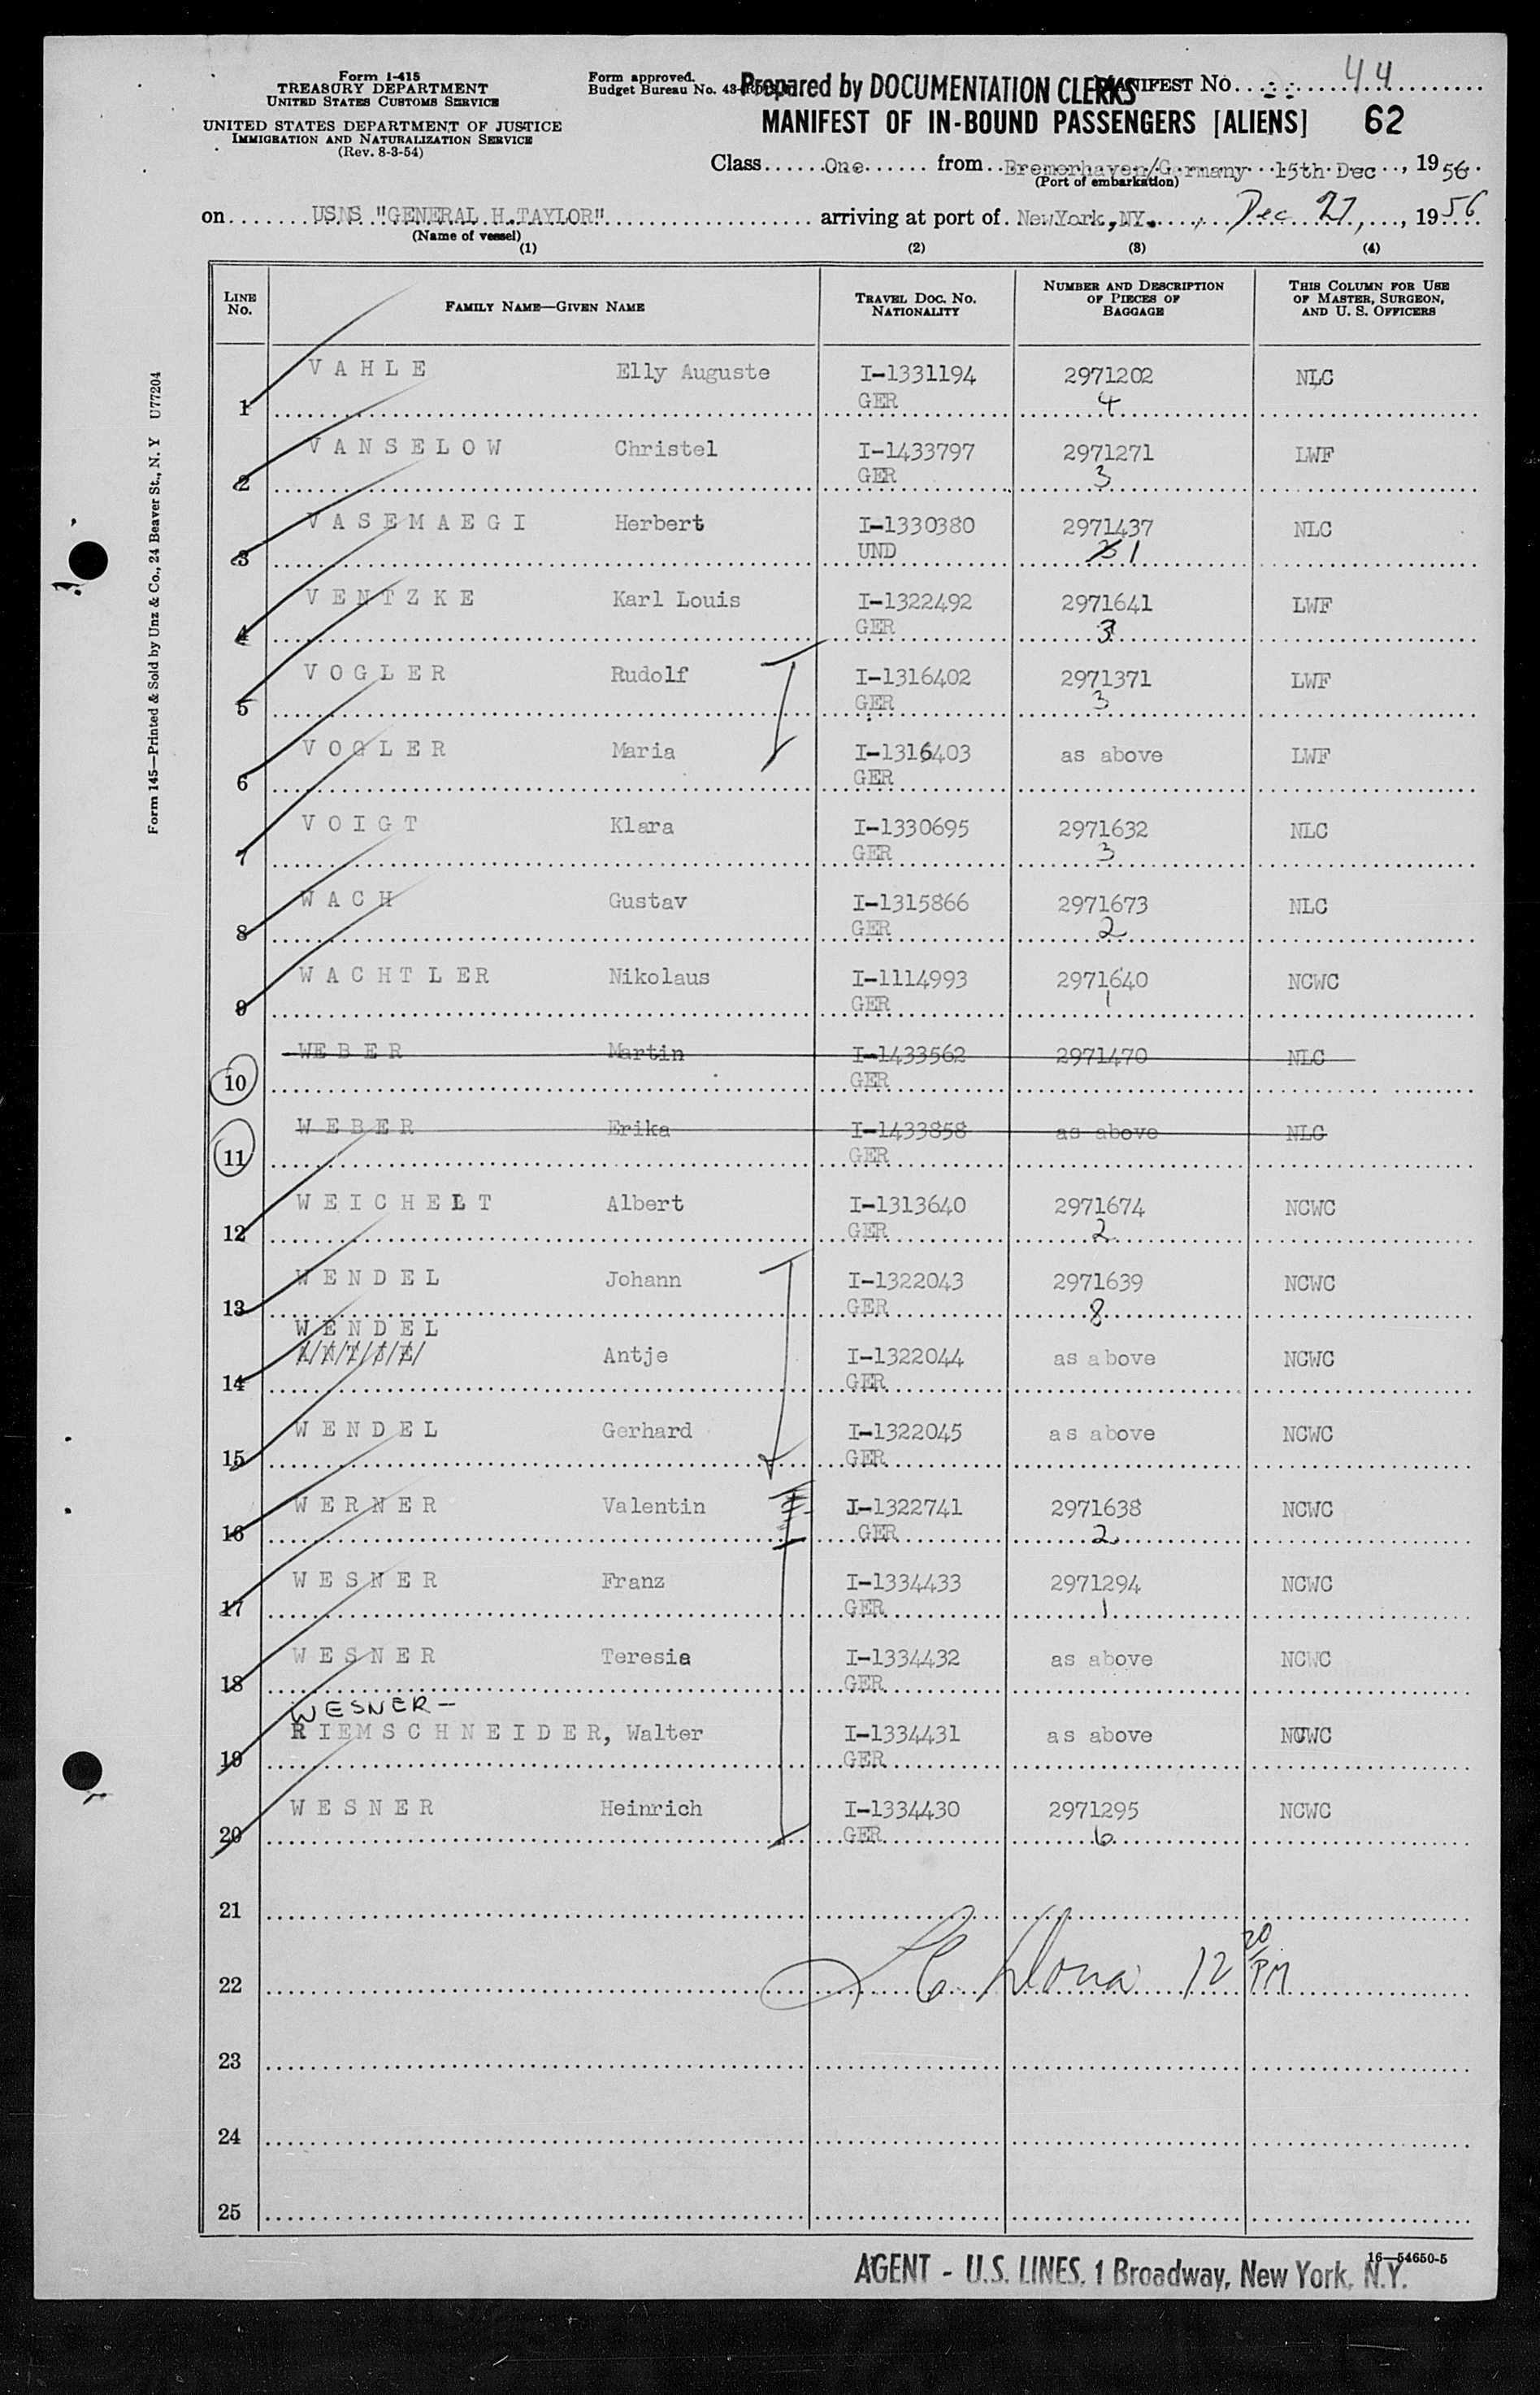 Form I-415
TREASURY DEPARTMENT
UNITED STATES CUSTOMS SERVICE
UNITED STATES DEPARTMENT OF JUSTICE
IMMIGRATION AND NATURALIZATION SERVICE
(Rev. 8-3-54)
Form approved.
Budget Bureau No. 43-
Prepared by DOCUMENTATION CLERKS
MANIFEST No. 44
MANIFEST OF IN-BOUND PASSENGERS [ALIENS] 62
Class One from Bremerhaven/Germany 15th Dec, 1956
(Port of embarkation)
on USNS "GENERAL H.TAYLOR" arriving at port of NewYork,NY., Dec 27, 1956
(Name of vessel)
(1) (2) (3) (4)
LINE No. FAMILY NAME—GIVEN NAME TRAVEL DOC. NO. NATIONALITY NUMBER AND DESCRIPTION OF PIECES OF BAGGAGE THIS COLUMN FOR USE OF MASTER, SURGEON, AND U. S. OFFICERS
1 VAHLE Elly Auguste I-1331194 2971202 NLC
GER 4
2 VANSELOW Christel I-1433797 2971271 LWF
GER 3
3 VASEMAEGI Herbert I-1330380 2971437 NLC
UND 1
4 VENTZKE Karl Louis I-1322492 2971641 LWF
GER 3
5 VOGLER Rudolf I-1316402 2971371 LWF
GER 3
6 VOGLER Maria I-1316403 as above LWF
GER
7 VOIGT Klara I-1330695 2971632 NLC
GER 3
8 WACH Gustav I-1315866 2971673 NLC
GER 2
9 WACHTLER Nikolaus I-1114993 2971640 NCWC
GER 1
10 WEBER Martin I-1433562 2971470 NLC
GER
11 WEBER Erika I-1433858 as above NLC
GER
12 WEICHELT Albert I-1313640 2971674 NCWC
GER 2
13 WENDEL Johann I-1322043 2971639 NCWC
GER 8
WENDEL
14 Antje I-1322044 as above NCWC
GER
15 WENDEL Gerhard I-1322045 as above NCWC
GER
16 WERNER Valentin I-1322741 2971638 NCWC
GER 2
17 WESNER Franz I-1334433 2971294 NCWC
GER 1
18 WESNER Teresia I-1334432 as above NCWC
GER
WESNER—
19 RIEMSCHNEIDER, Walter I-1334431 as above NCWC
GER
20 WESNER Heinrich I-1334430 2971295 NCWC
GER 6
21
22 12 20 PM
23
24
25
16—54650-5
AGENT - U.S. LINES, 1 Broadway, New York, N.Y.
Form 145—Printed & Sold by Unz & Co., 24 Beaver St., N. Y U77204